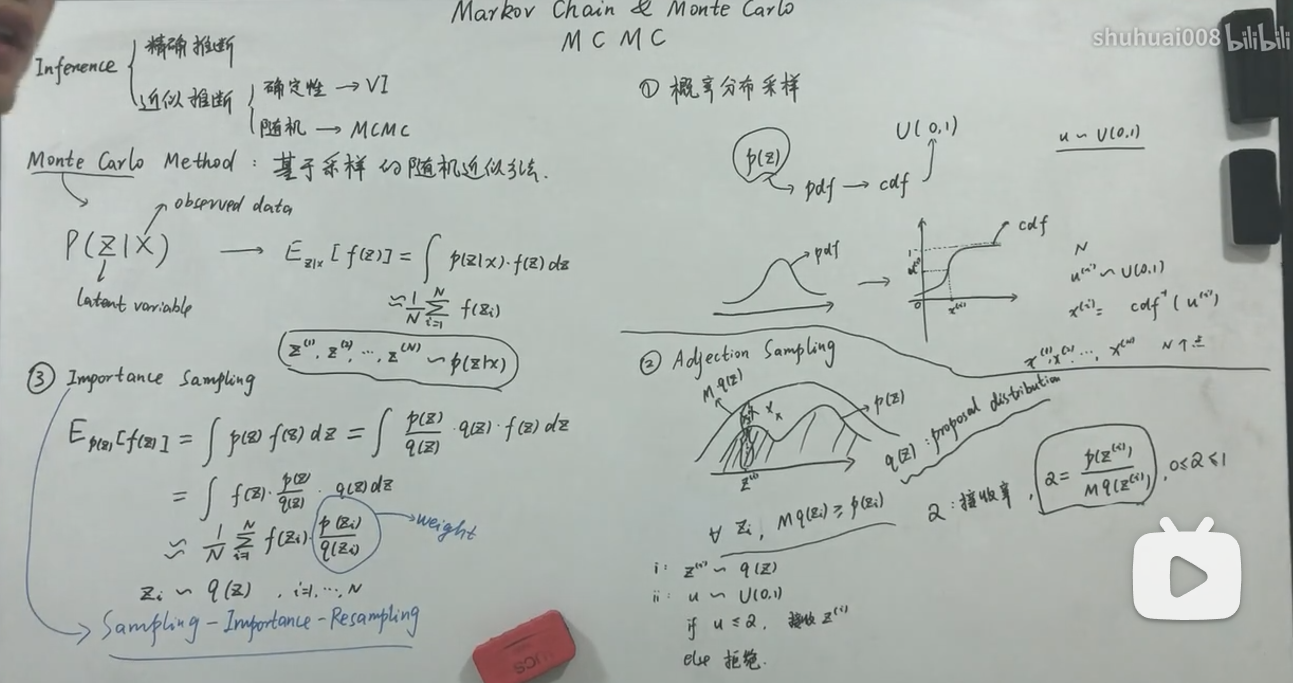 Markov Chain & Monte Carlo
MCMC
shuhuai008 bilibili
Inference
精确推断
近似推断
确定性 → VI
随机 → MCMC
Monte Carlo Method : 基于采样的随机近似方法.
observed data
P(Z|X) → E_{z|x}[f(z)] = ∫ p(z|x)·f(z) dz
latent variable
≈ 1/N ∑_{i=1}^{N} f(z_i)
z^{(1)}, z^{(2)}, ..., z^{(N)} ~ p(z|x)
③ Importance Sampling
E_{p(z)}[f(z)] = ∫ p(z) f(z) dz = ∫ p(z)/q(z) · q(z) · f(z) dz
= ∫ f(z) · p(z)/q(z) · q(z) dz
≈ 1/N ∑_{i=1}^{N} f(z_i) · p(z_i)/q(z_i) → weight
z_i ~ q(z), i=1, ..., N
Sampling-Importance-Resampling
① 概率分布采样
U(0,1)
u ~ U(0,1)
p(z) → pdf → cdf
pdf → cdf
1
u^{(i)}
x^{(i)}
N
u^{(i)} ~ U(0,1)
x^{(i)} = cdf^{-1}(u^{(i)})
x^{(1)}, x^{(2)}, ..., x^{(N)} N个点
② Adjection Sampling
M q(z)
p(z)
z^{(i)}
q(z) : proposal distribution
∀ z_i, M q(z_i) ≥ p(z_i)
α : 接收率, α = p(z^{(i)}) / M q(z^{(i)}), 0≤α≤1
i: z^{(i)} ~ q(z)
ii: u ~ U(0,1)
if u ≤ α, 接收 z^{(i)}
else 拒绝.